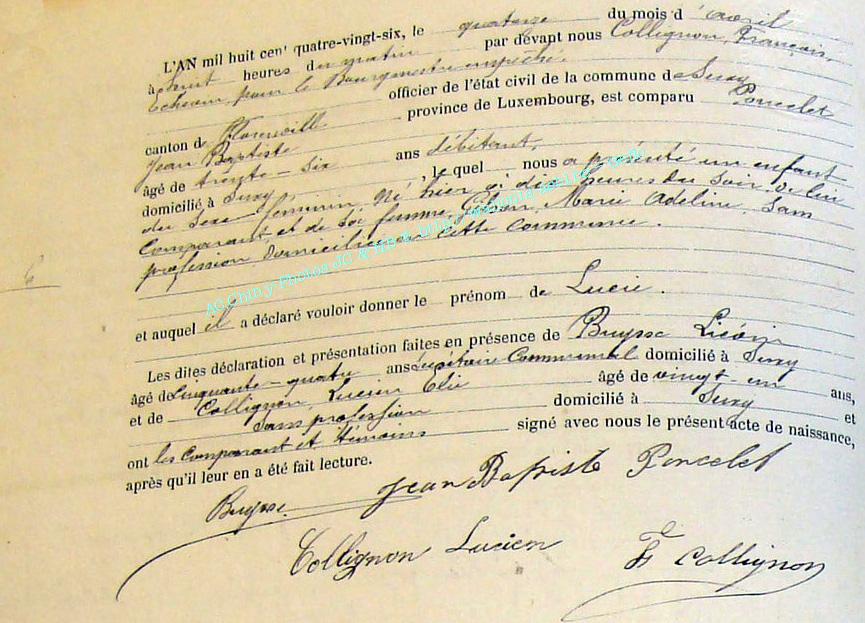 L'AN mil huit cen' quatre-vingt-six, le quatorze du mois d'avril
à huit heures du matin par devant nous Collignon, François,
Echevin pour le Bourgmestre empêché.
officier de l'état civil de la commune de Suxy
canton de Florenville province de Luxembourg, est comparu Poncelet
Jean Baptiste
âgé de trente-six ans débitant,
domicilié à Suxy, le quel nous a présenté un enfant
du sexe féminin né hier à dix heures du soir de lui
comparant et de sa femme Gibon, Marie Adeline, sans
profession domiciliée en cette commune.
6
et auquel il a déclaré vouloir donner le prénom de Lucie.
Les dites déclaration et présentation faites en présence de Buysse
âgé de cinquante-quatre ans Secrétaire Communal domicilié à Suxy
et de Collignon, Lucien Elie âgé de vingt-un ans,
sans profession domicilié à Suxy et
ont les Comparant et témoins signé avec nous le présent acte de naissance,
après qu'il leur en a été fait lecture.
Buysse Jean Baptiste Poncelet
Collignon Lucien F Collignon
AC Chiny Photos JC &